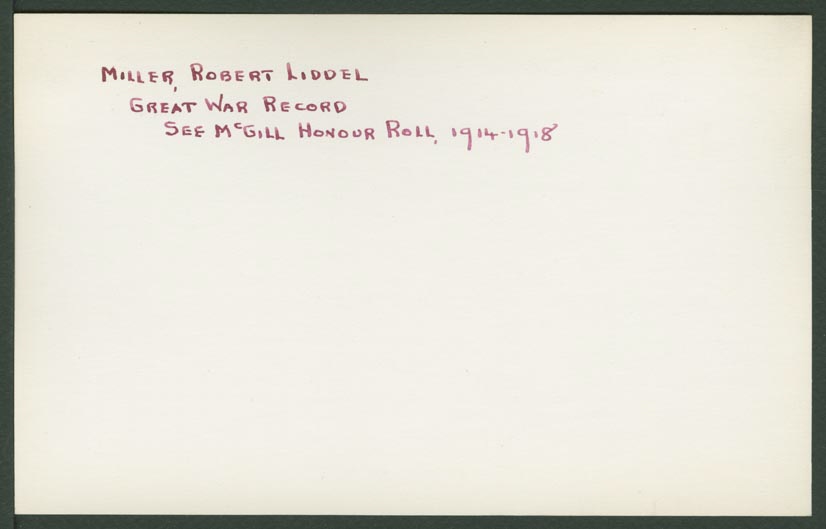 MILLER, ROBERT LIDDEL
GREAT WAR RECORD
SEE McGILL HONOUR ROLL, 1914-1918